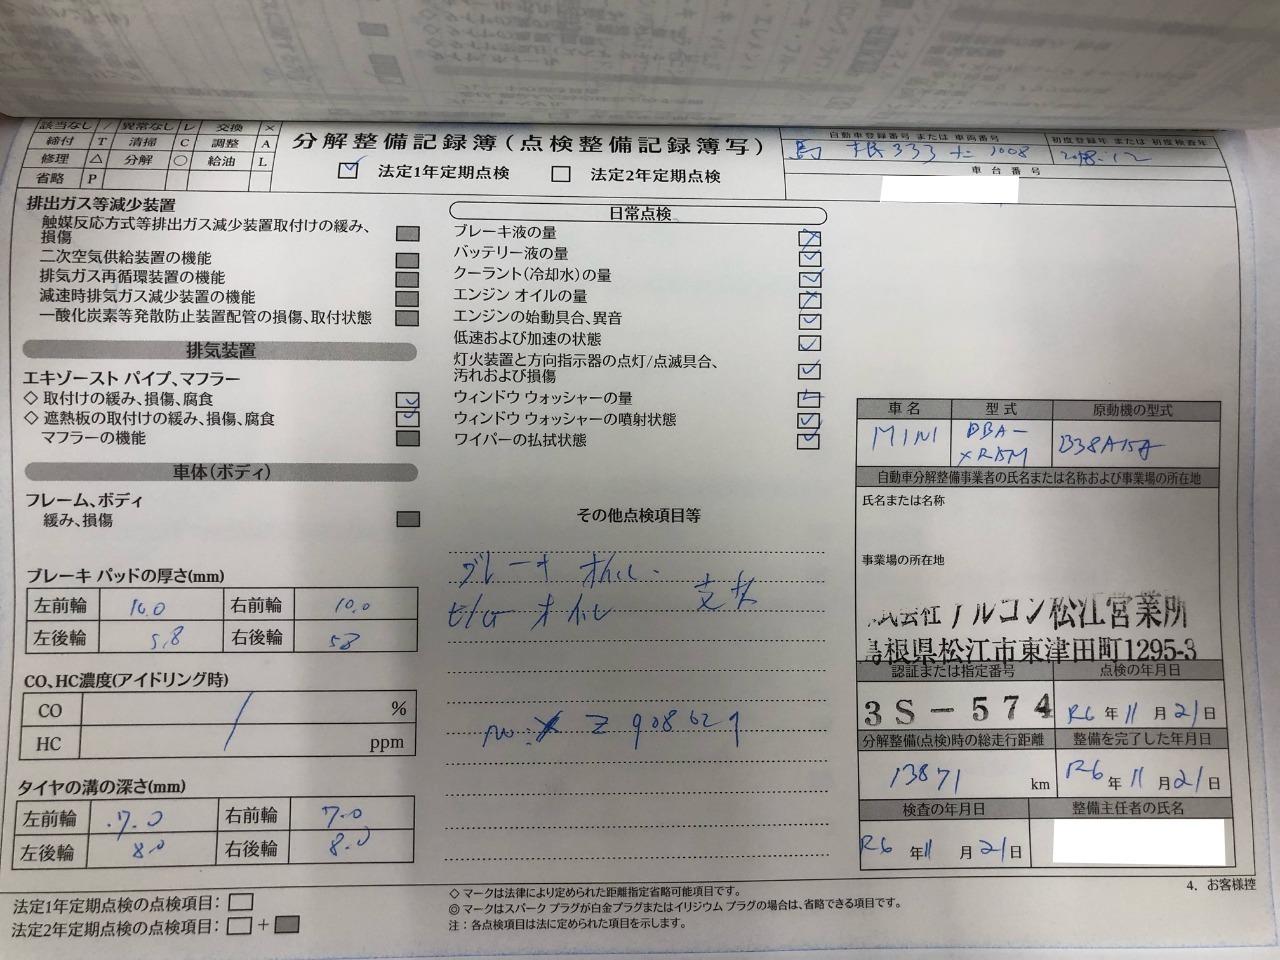 該当なし / 異常なし レ 交換 ×
締付 T 清掃 C 調整 A
修理 △ 分解 ○ 給油 L
省略 P
分解整備記録簿(点検整備記録簿写)
法定1年定期点検 法定2年定期点検
自動車登録番号 または 車両番号
初度登録年 または 初度検査年
島根333 1008
2018.12
車台番号
排出ガス等減少装置
触媒反応方式等排出ガス減少装置取付けの緩み、
損傷
二次空気供給装置の機能
排気ガス再循環装置の機能
減速時排気ガス減少装置の機能
一酸化炭素等発散防止装置配管の損傷、取付状態
排気装置
エキゾースト パイプ、マフラー
◇ 取付けの緩み、損傷、腐食
◇ 遮熱板の取付けの緩み、損傷、腐食
マフラーの機能
車体(ボディ)
フレーム、ボディ
緩み、損傷
ブレーキ パッドの厚さ(mm)
左前輪 10.0 右前輪 10.0
左後輪 5.8 右後輪 5.8
CO、HC濃度(アイドリング時)
CO %
HC ppm
タイヤの溝の深さ(mm)
左前輪 7.0 右前輪 7.0
左後輪 8.0 右後輪 8.0
法定1年定期点検の点検項目:
法定2年定期点検の点検項目: +
日常点検
ブレーキ液の量
バッテリー液の量
クーラント(冷却水)の量
エンジン オイルの量
エンジンの始動具合、異音
低速および加速の状態
灯火装置と方向指示器の点灯/点滅具合、
汚れおよび損傷
ウィンドウ ウォッシャーの量
ウィンドウ ウォッシャーの噴射状態
ワイパーの払拭状態
その他点検項目等
ブレーキ オイル
オイル
Z908629
◇ マークは法律により定められた距離指定省略可能項目です。
◎ マークはスパーク プラグが白金プラグまたはイリジウム プラグの場合は、省略できる項目です。
注：各点検項目は法に定められた項目を示します。
車名 型式 原動機の型式
MINI DBA-
XR15M B38A15A
自動車分解整備事業者の氏名または名称および事業場の所在地
氏名または名称
事業場の所在地
式会社アルコン松江営業所
島根県松江市東津田町1295-3
認証または指定番号 点検の年月日
3S-574 R6年11月21日
分解整備(点検)時の総走行距離 整備を完了した年月日
13871 km R6年11月21日
検査の年月日 整備主任者の氏名
R6年11月21日
4. お客様控